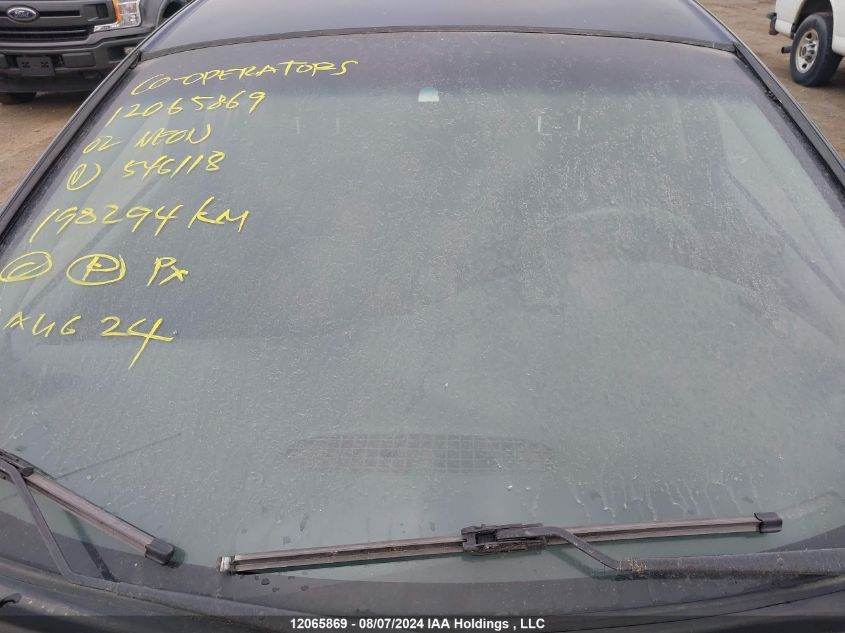 Ford
CO-OPERATORS
12065869
02 NEON
V 546118
198294 KM
C P Px
AUG 24
12065869 - 08/07/2024 IAA Holdings , LLC